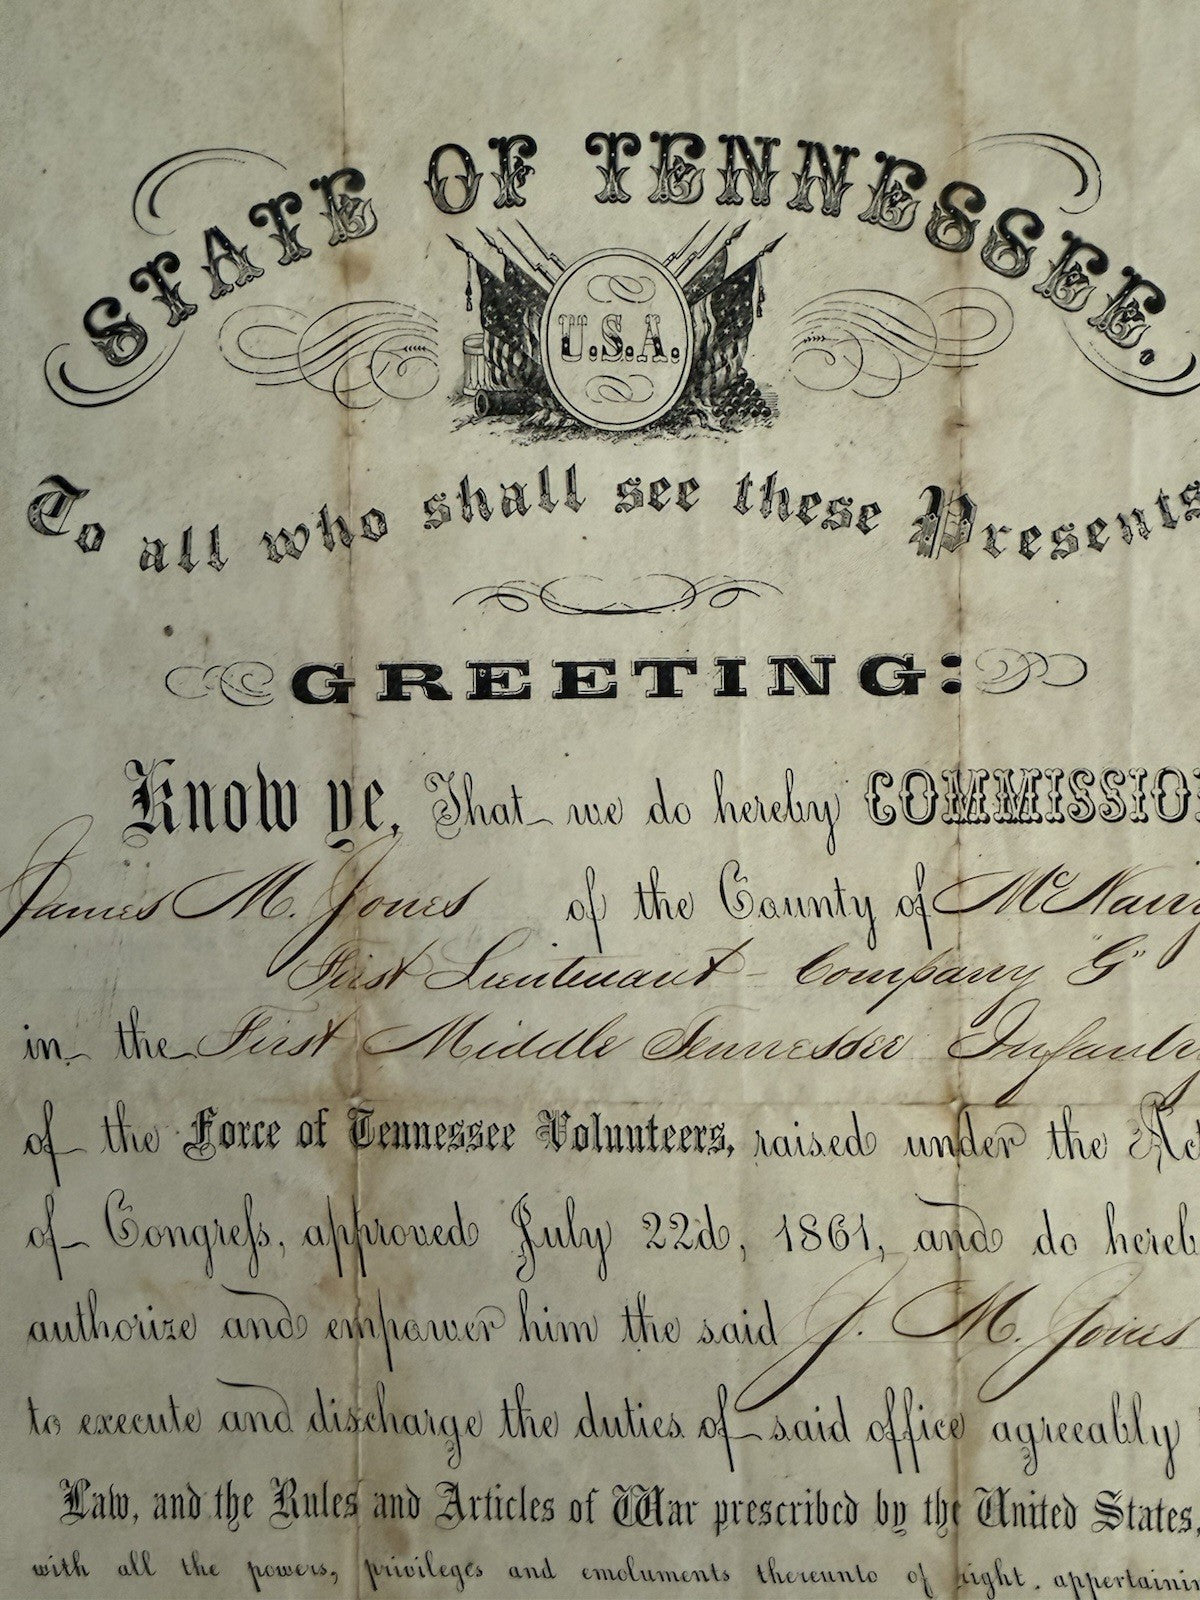 STATE OF TENNESSEE.
U.S.A.
To all who shall see these Presents
GREETING:
Know ye, That we do hereby COMMISSIO
James M. Jones of the County of McNairy
First Lieutenant - Company "G"
in the First Middle Tennessee Infantry
of the Force of Tennessee Volunteers, raised under the Act
of Congreſs, approved July 22d, 1861, and do hereb
authorize and empower him the said J. M. Jones
to execute and discharge the duties of said office agreeably
Law, and the Rules and Articles of War prescribed by the United States,
with all the powers, privileges and emoluments thereunto of right, appertainin